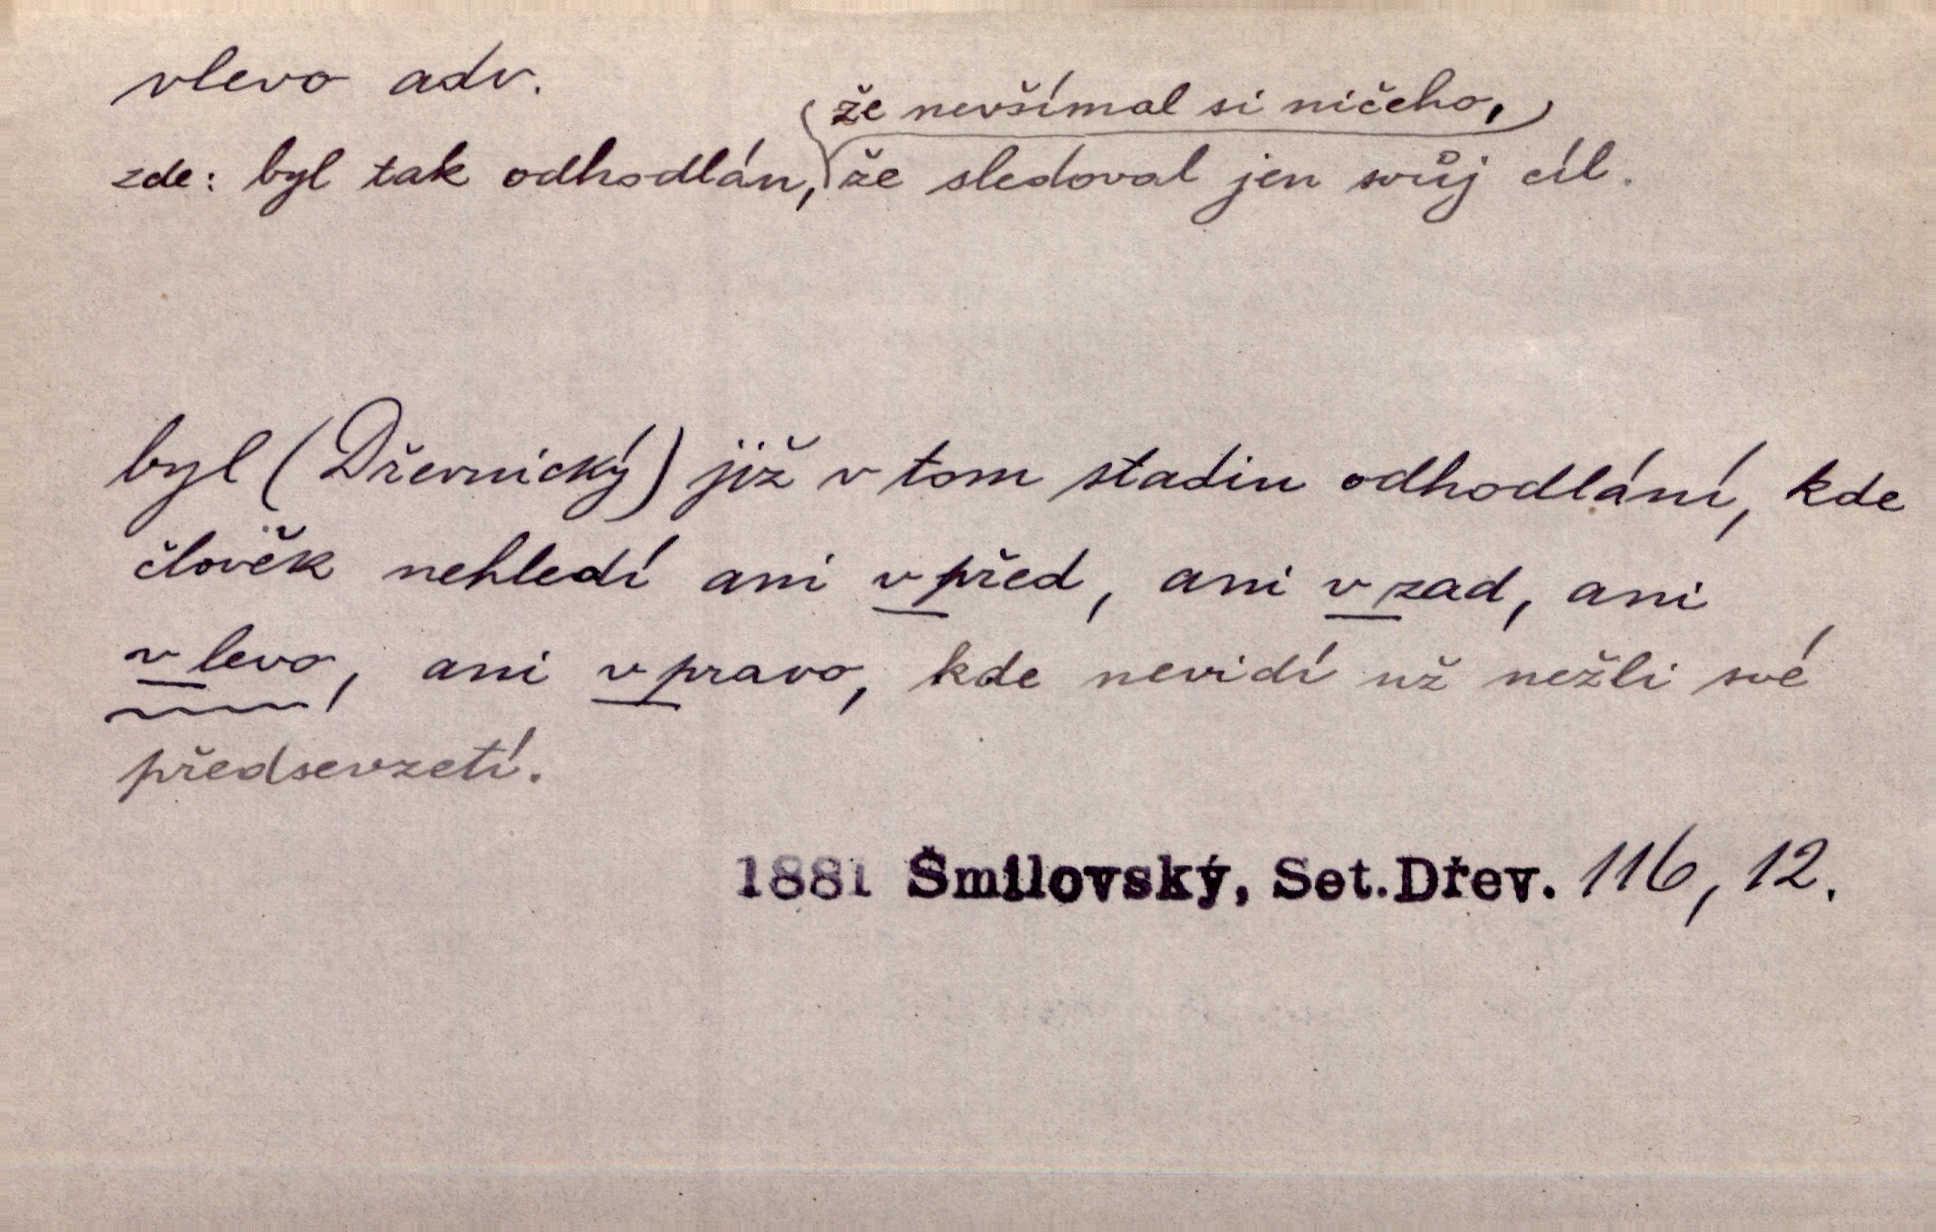 vlevo adv.
že nevšímal si ničeho,
zde: byl tak odhodlán, že sledoval jen svůj cíl.
byl (Dřevnický) již v tom stadiu odhodlání, kde
člověk nehledí ani v před, ani v zad, ani
v levo, ani v pravo, kde nevidí už nežli své
předsevzetí.
1881 Šmilovský, Set.Dřev. 116, 12.